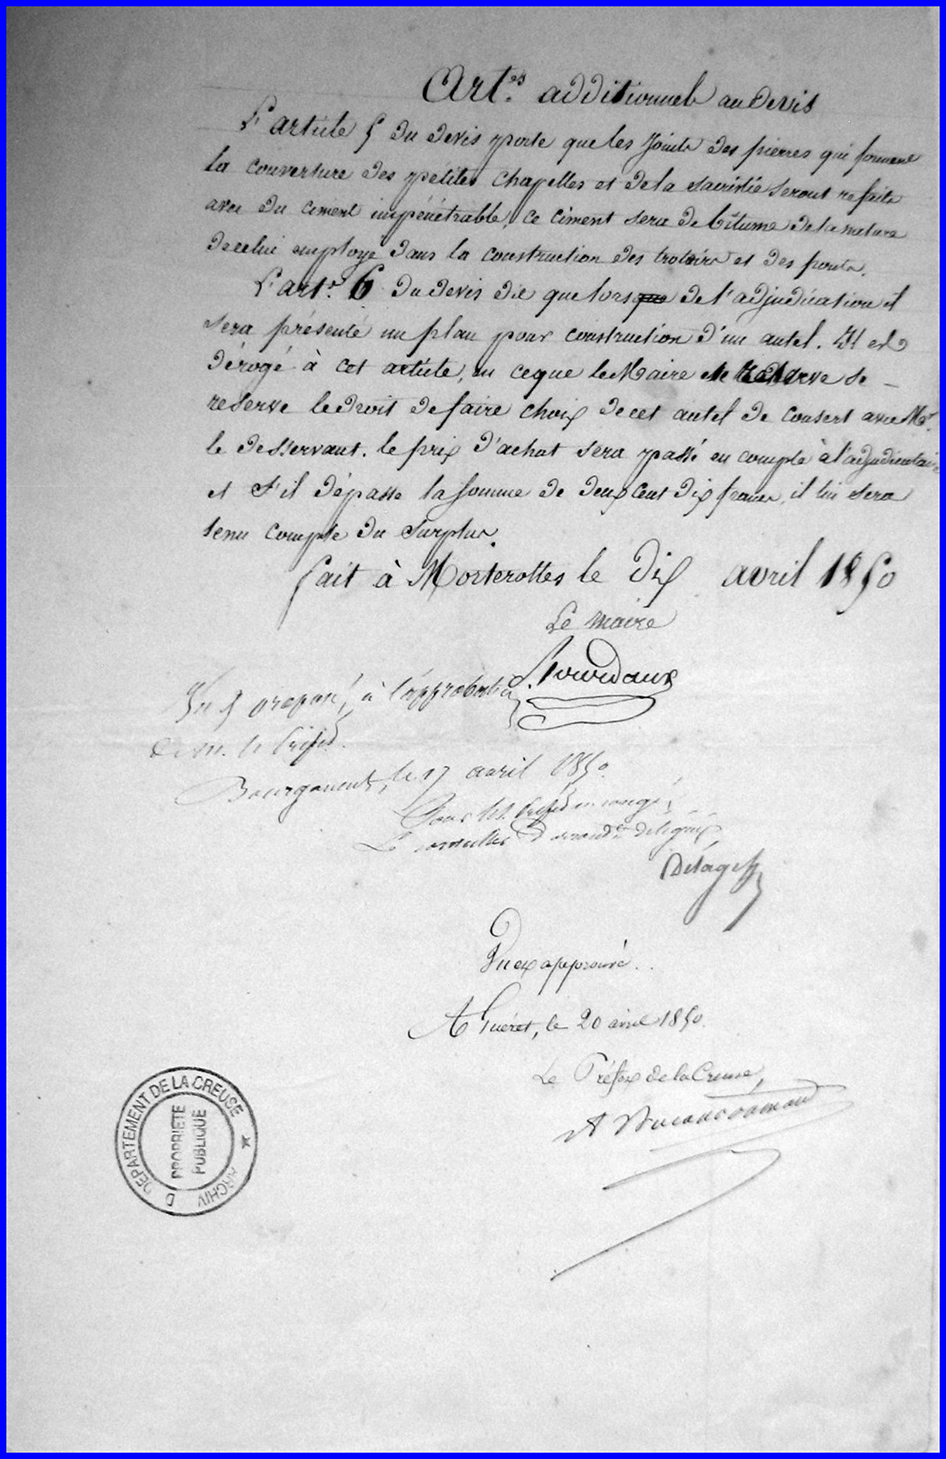 Art.es additionnels au devis
L'article 5 du devis porte que les joints des pierres qui forment
la couverture des petites chapelles et de la sacristie seront refaits
avec du ciment impénétrable, ce ciment sera de bitume de la nature
de celui employé dans la construction des trotoirs et des ponts.
L'art.e 6 du devis dit que lorsque de l'adjudication il
sera présenté un plan pour construction d'un autel. Il est
dérogé à cet article, en ce que le Maire se
reserve le droit de faire choix de cet autel de consert avec Mr
le desservant. le prix d'achat sera passé en compte à l'adjudicataire
et s'il dépasse la somme de deux cent dix francs, il lui sera
tenu compte du surplus.
fait à Morterolles le dix avril 1850
Le maire
Jourdaux
Vu & proposé, à l'approbation
de M. le Préfet.
Bourganeuf, le 17 avril 1850.
Pour le s. Préfet en congé,
Le conseiller d'arrondt délégué,
Vu et approuvé.
A Guéret, le 20 avril 1850.
Le Préfet de la Creuse,
DEPARTEMENT DE LA CREUSE
PROPRIETE
PUBLIQUE
ARCHIV D